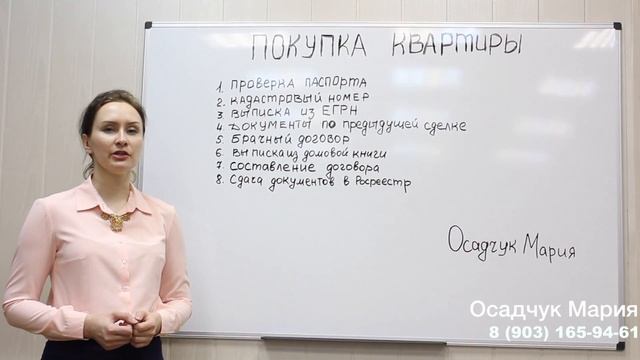 ПОКУПКА КВАРТИРЫ
1. ПРОВЕРКА ПАСПОРТА
2. КАДАСТРОВЫЙ НОМЕР
3 ВЫПИСКА ИЗ ЕГРН
4. ДОКУМЕНТЫ ПО ПРЕДЫДУЩЕЙ СДЕЛКЕ
5 БРАЧНЫЙ ДОГОВОР
6. ВЫПИСКА ИЗ ДОМОВОЙ КНИГИ
7. СОСТАВЛЕНИЕ ДОГОВОРА
8. Сдача документов в Росреестр
Осадчук Мария
Осадчук Мария
8 (903) 165-94-61